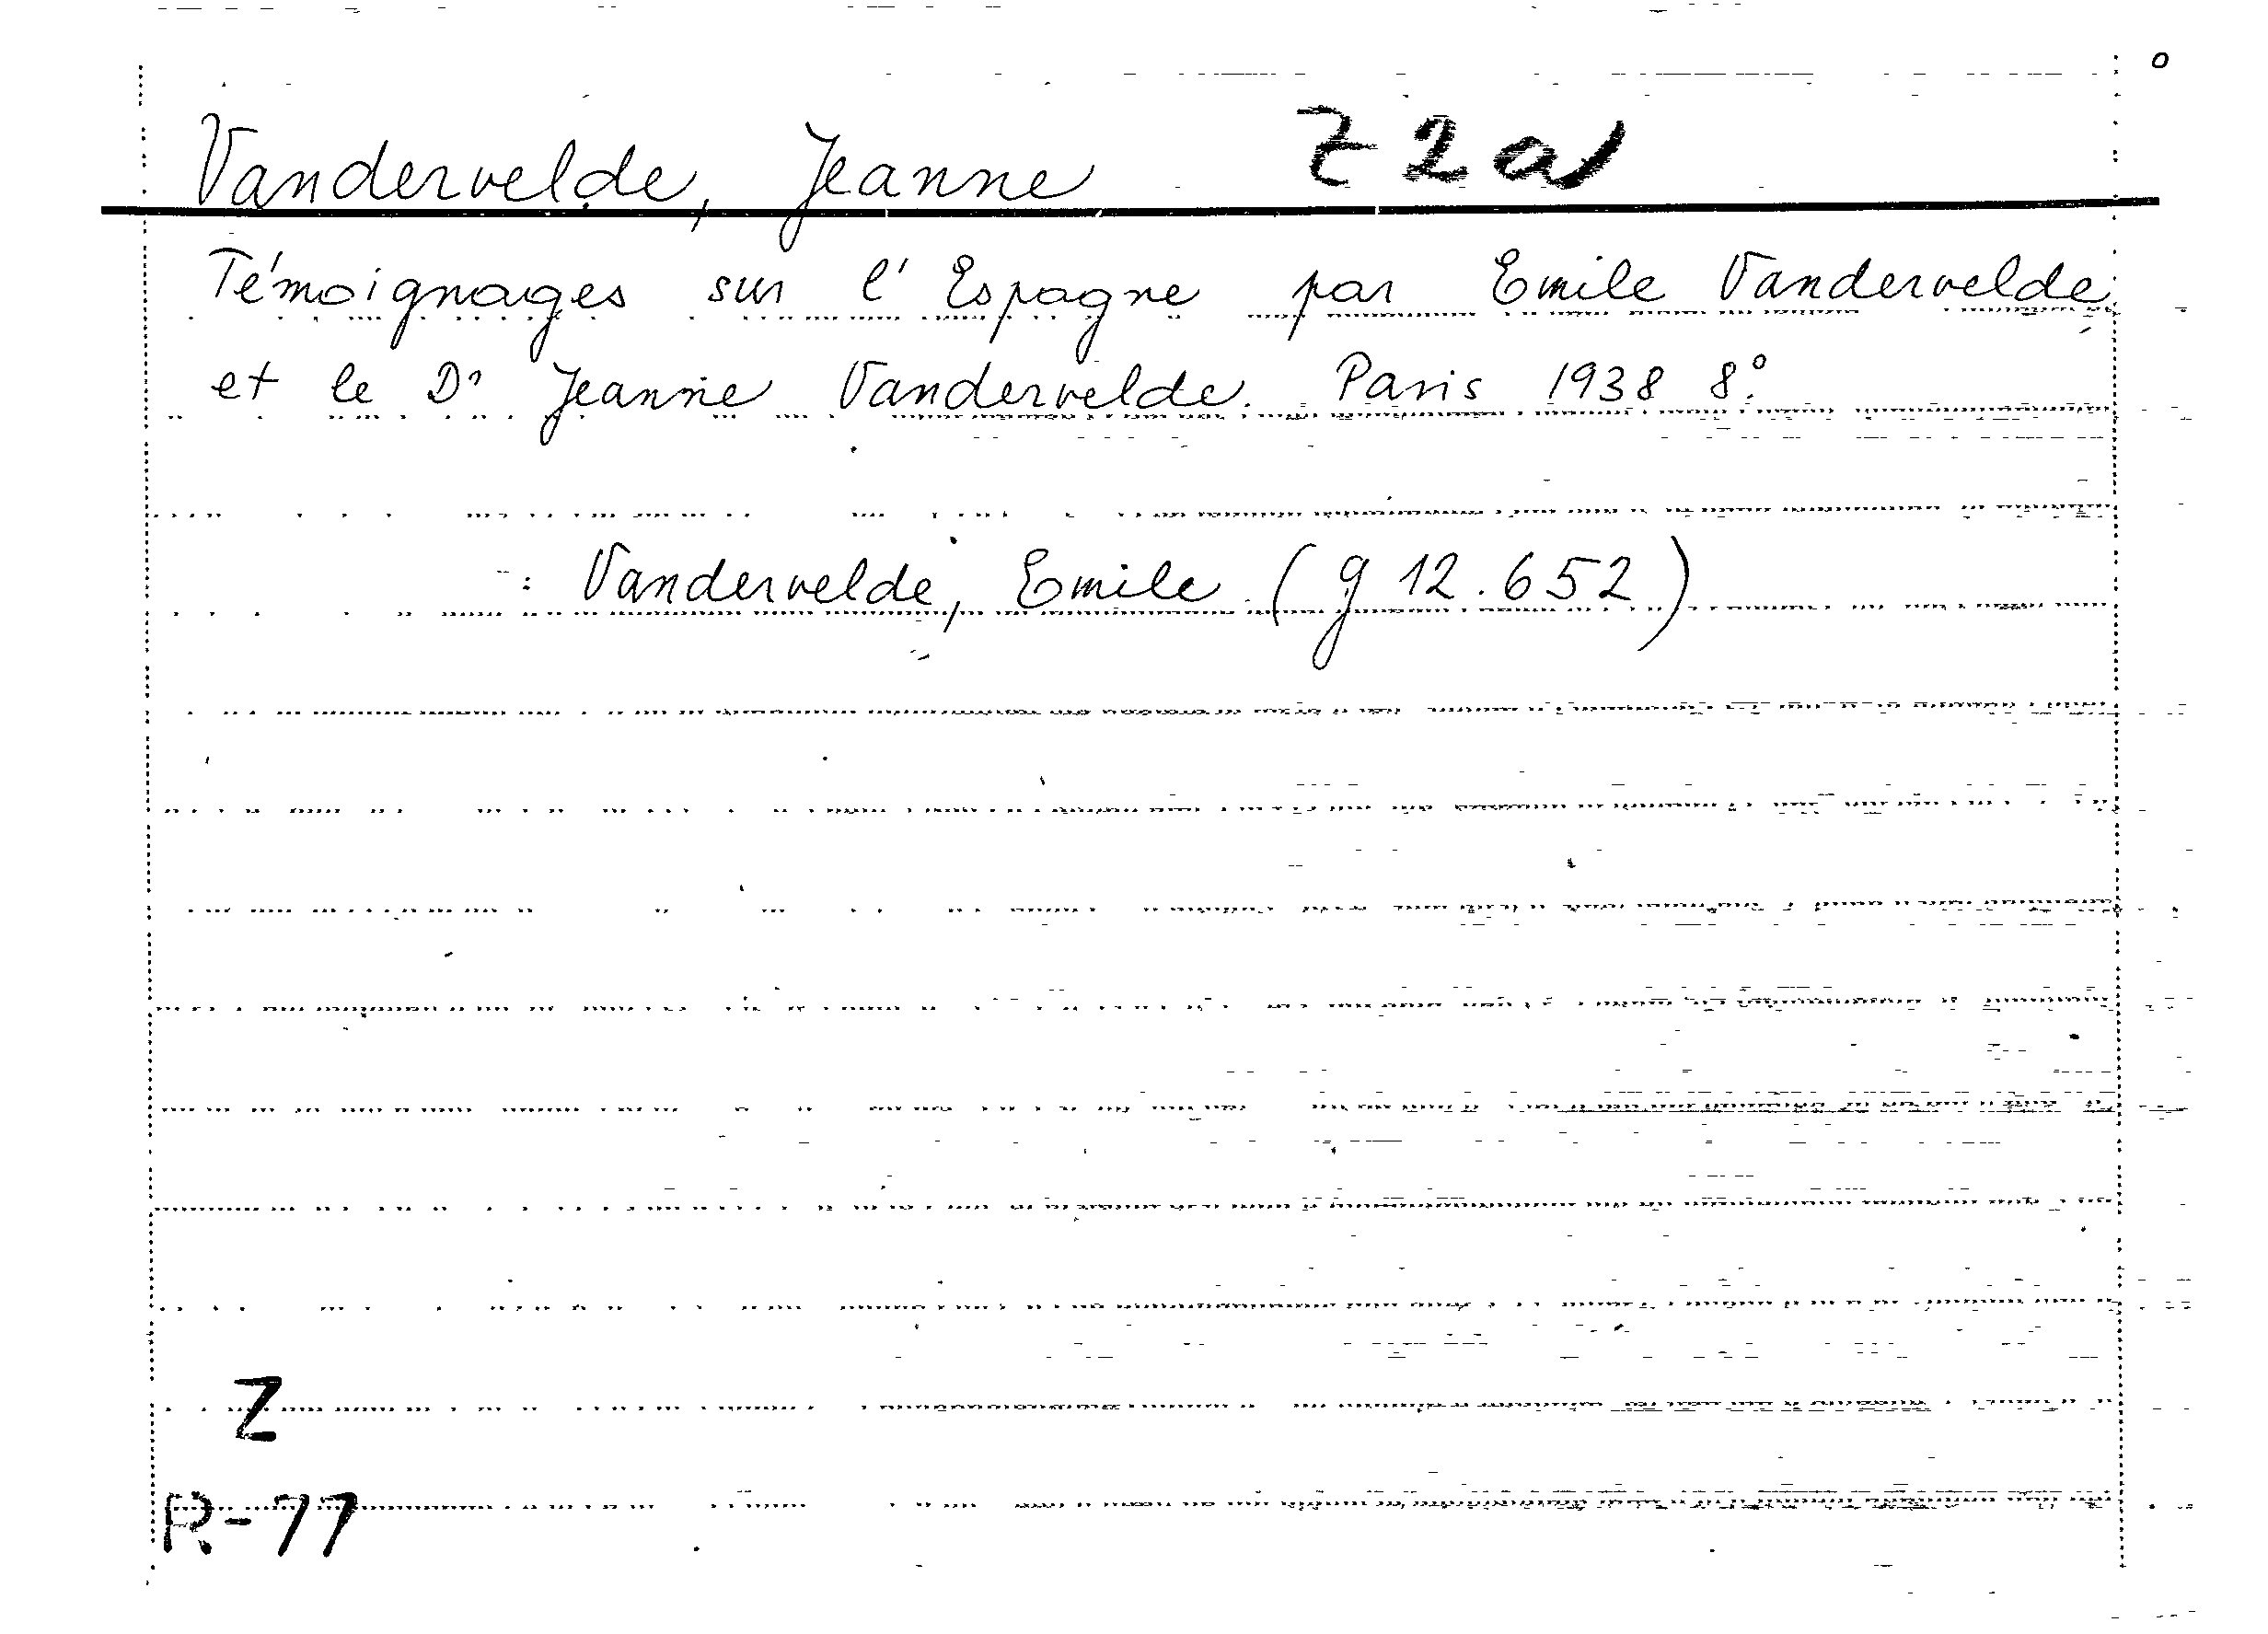 Vandervelde, Jeanne Z 2a
Témoignages sur l'Espagne par Emile Vandervelde
et le Dr Jeanne Vandervelde. Paris 1938 8°.
: Vandervelde, Emile (g 12.652)
Z
R-77